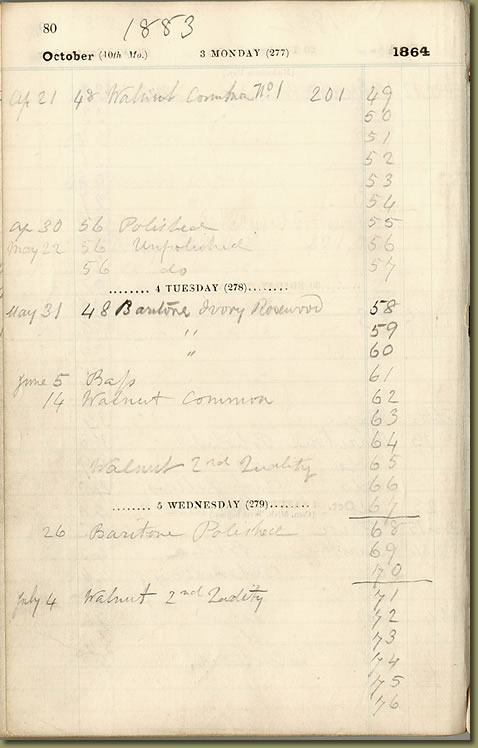 80 1883
October (40th Mo.) 3 MONDAY (277) 1864
Ap 21 48 Walnut Common No 1 201 49
50
51
52
53
54
Ap 30 56 Polished 55
May 22 56 Unpolished 56
56 do 57
........ 4 TUESDAY (278)........
May 31 48 Baritone Ivory Rosewood 58
" 59
" 60
June 5 Bass 61
14 Walnut Common 62
63
64
Walnut 2nd Quality 65
66
67
........ 5 WEDNESDAY (279)........
26 Baritone Polished 68
69
70
July 4 Walnut 2nd Quality 71
72
73
74
75
76